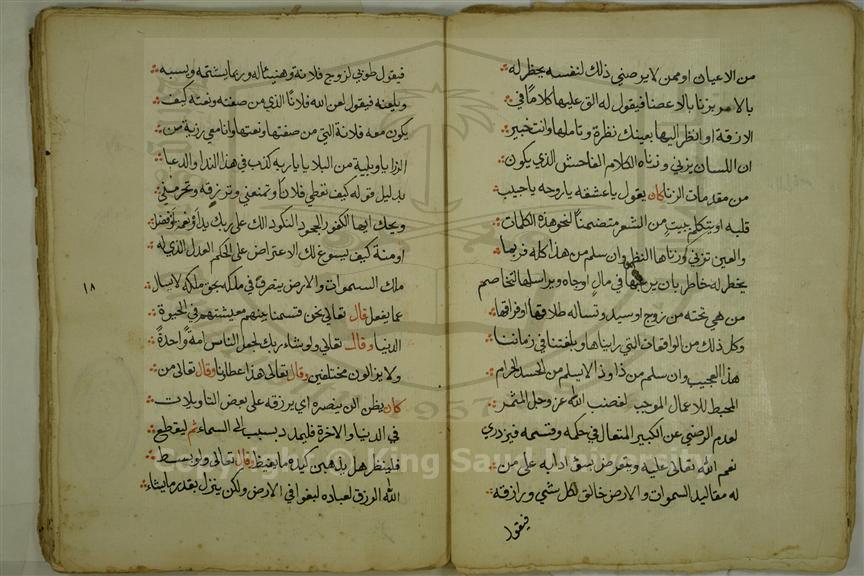 من الاعيان او ممن لا يرضى ذلك لنفسه يخطر له
بالامر بزنا بالاعضا فيقول له الق عليها كلاما في
الازقة او انظر اليها بعينك نظرة وتاملها وانت خبير
ان اللسان يزني وزناه الكلام الفاحش الذي يكون
من مقدمات الزنا كان يقول ياعشقه ياروحه ياحبيب
قلبه او يتكلم ببيت من الشعر متضمنا لنحو هذه الكلمات
والعين تزني وزناها النظر وان سلم من هذا كله فربما
يخطر له خاطر بان يرغبها في مال او جاه ويراسلها لتخاصم
من هي تحته من زوج او سيد وتساله طلاقها وفراقها
وكل ذلك من الواقعات التي رايناها وبلغتنا في زماننا
هذا العجيب وان سلم من ذا وذا لا يسلم من الحسد الحرام
المحبط للاعمال الموجب لغضب الله عز وجل المثمر
لعدم الرضى عن الكبير المتعال في حكمه وقسمه فيزدري
نعم الله تعالى عليه ويتعرض بسوء ادابه على من
له مقاليد السموات والارض خالق لكل شي ورازقه
فيقول
فيقول طوبى لزوج فلانة وهنيئا له وربما يشتمه ويسبه
ويلعنه فيقول لعن الله فلانا الذي من صفته ونعته كيف
يكون معه فلانة التي من صفتها ونعتها وانا معي رزية من
الرزايا وبلية من البلايا يارب به كذب في هذا الندا والدعا
بدليل قوله كيف تعطي فلانا وتمنعني وترزقه وتحرمني
ويحك ايها الكفور الجحود النكود الك على ربك يد او نعم او فضل
او منة كيف يسوغ لك الاعتراض على الحكم العدل الذي له
ملك السموات والارض يتصرف في ملكه بحق ملكه لا يسال
١٨
عما يفعل قال تعالى نحن قسمنا بينهم معيشتهم في الحيوة
الدنيا وقال تعالى ولو شاء ربك لجعل الناس امة واحدة
ولا يزالون مختلفين وقال تعالى هذا عطاؤنا وقال تعالى من
كان يظن ان لن ينصره اي يرزقه على بعض التاويلات
في الدنيا والاخرة فليمدد بسبب الى السماء ثم ليقطع
فلينظر هل يذهبن كيده ما يغيظ وقال تعالى ولو بسط
الله الرزق لعباده لبغوا في الارض ولكن ينزل بقدر ما يشاء
Copyright © King Saud University
1957